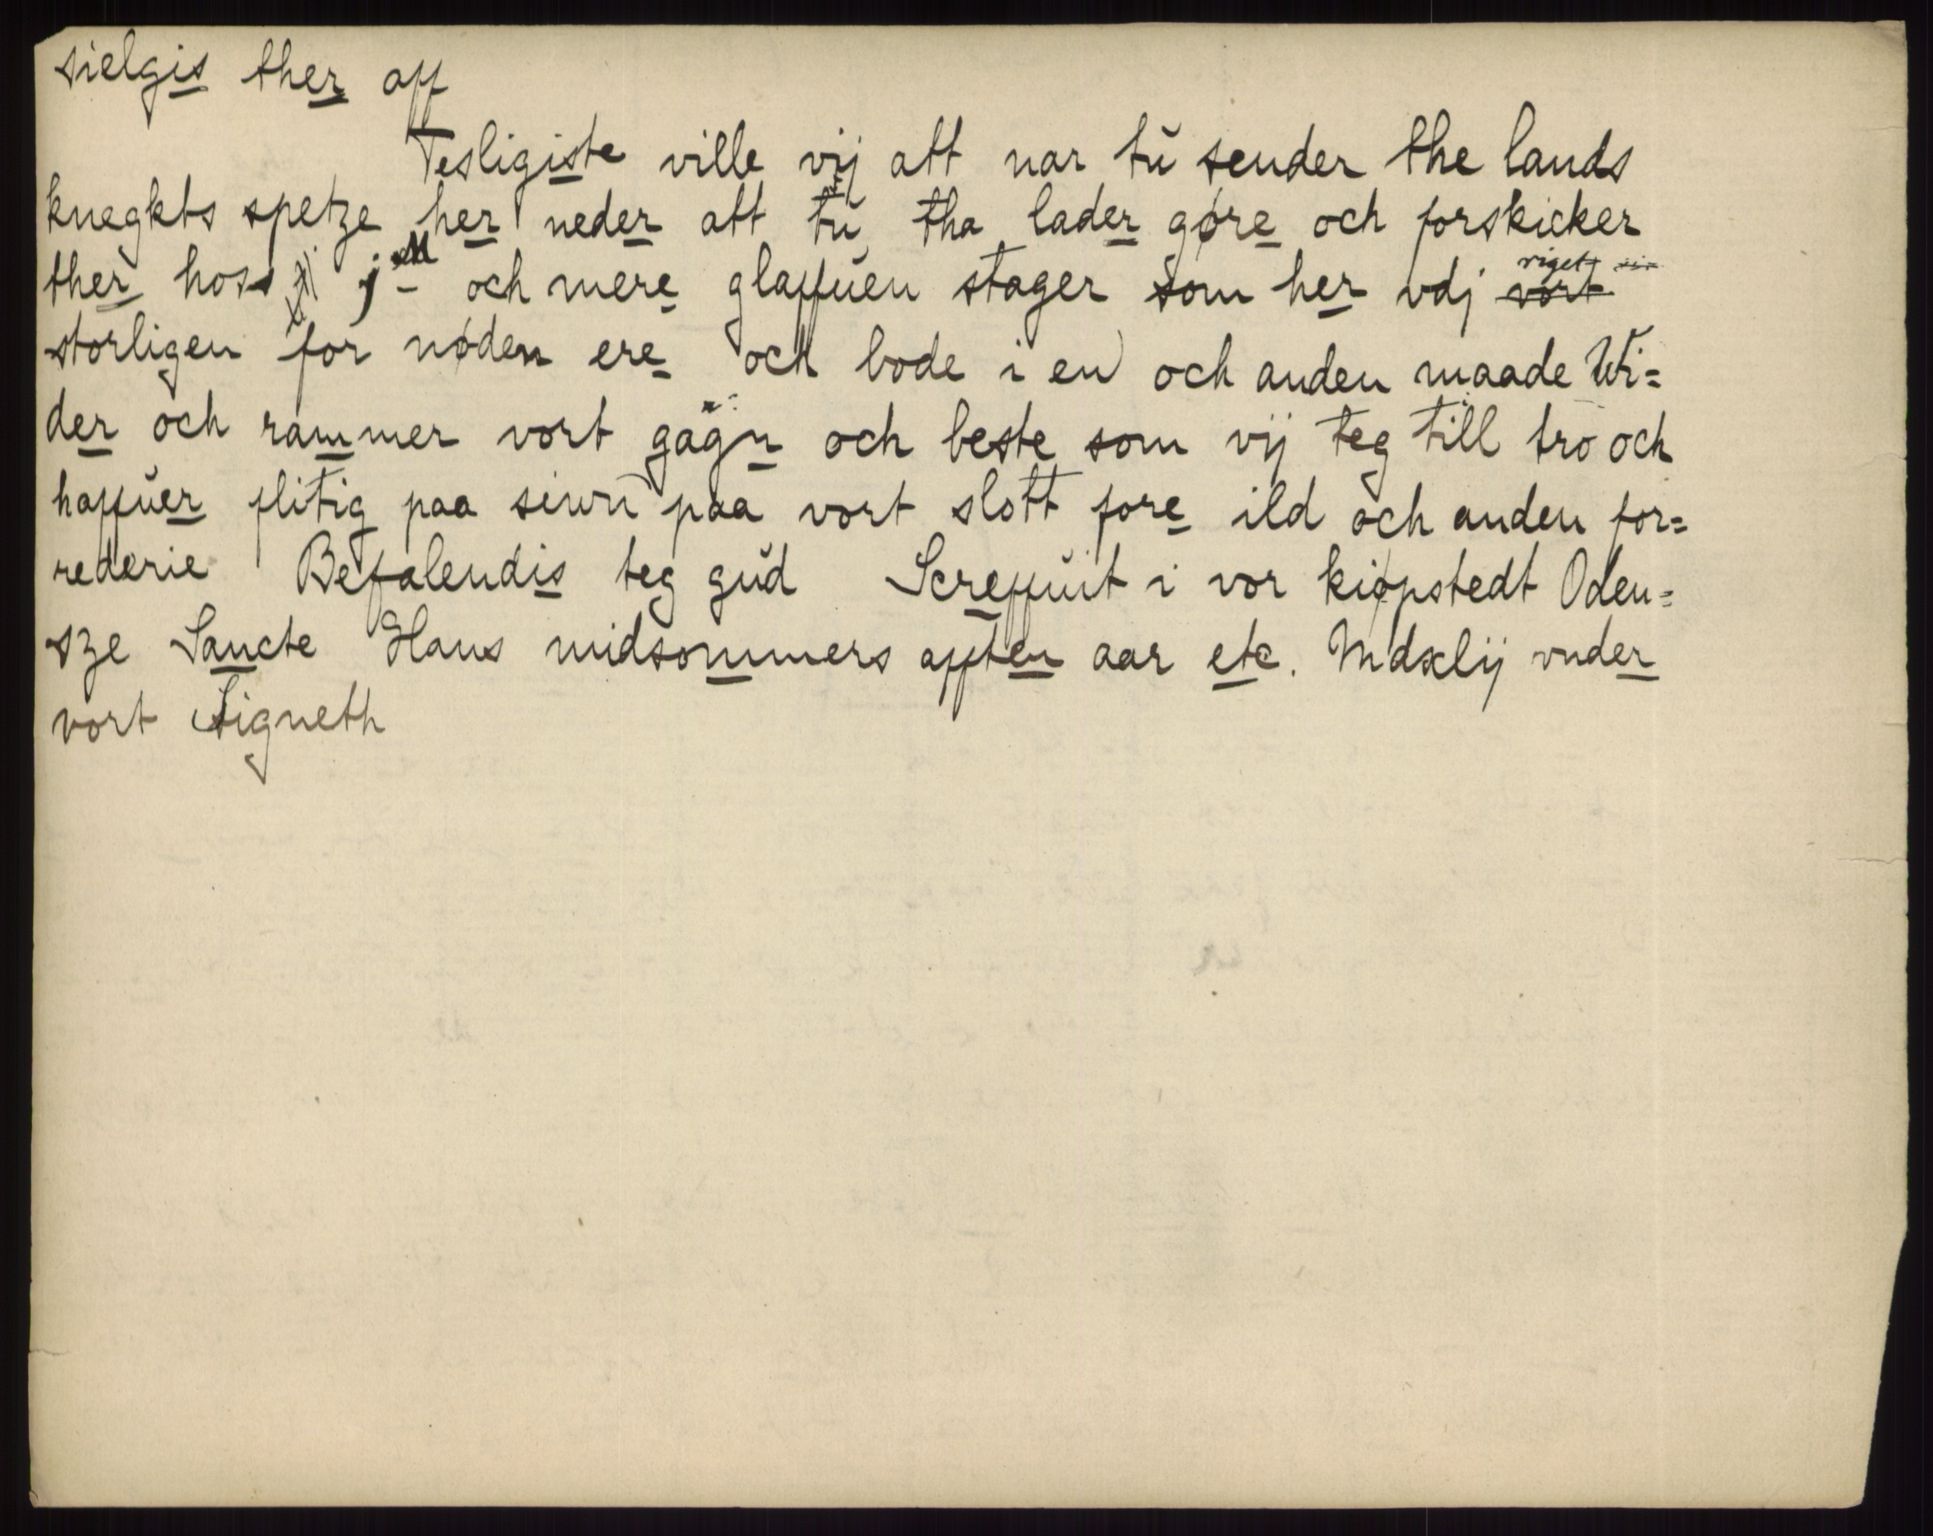 sielgis ther aff
Tesligiste ville vij att nar tū sender the lands
knegkts spetze her neder att tū tha lader gøre och forskicker
ther hoss jM och mere glaffūen stager som her vdj riget
storligen for nøden ere och bode i en och anden maade Wi=
der och rammer vort gagn och beste som vij teg till tro och
haffūer flitig paa siwn paa vort slott fore ild och anden for=
rederie Befalendis teg gūd Screffuit i vor kiøpstedt Oden=
sze Sancte Hans midsommers afften aar etc. Mdxlij vnder
vort Signeth